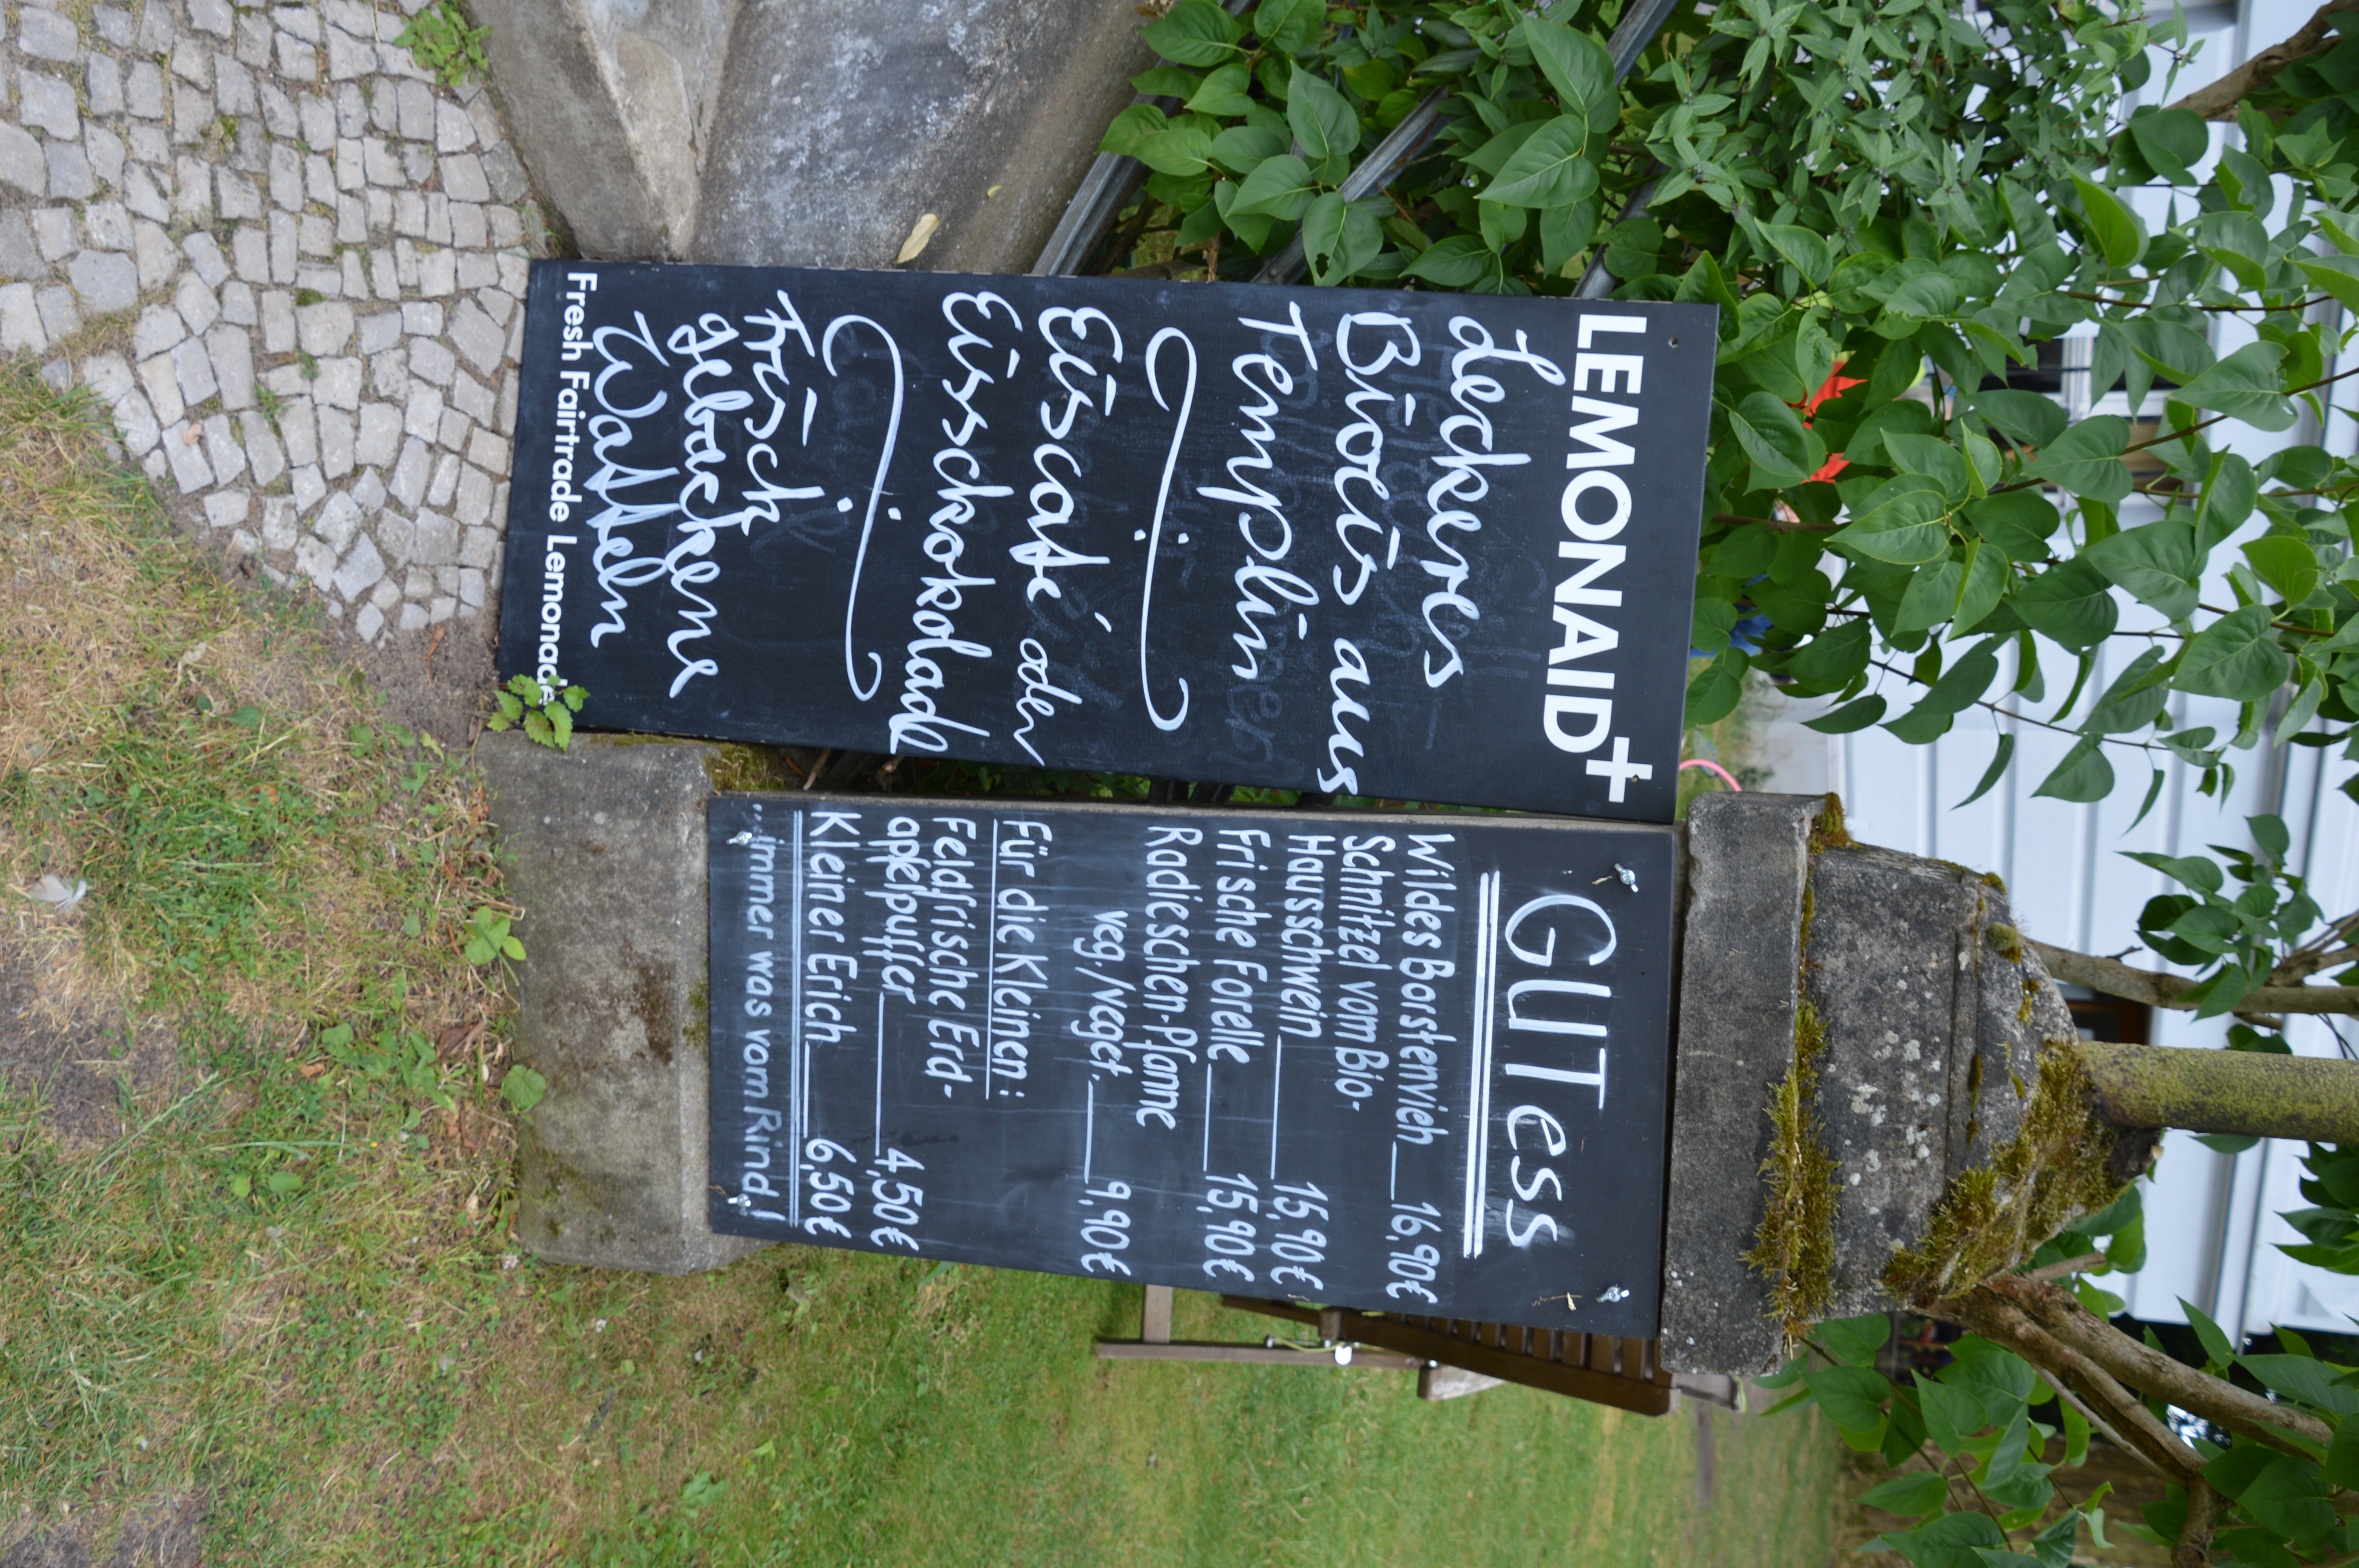 LEMONAID+
Leckeres
Bioeis aus
Templin
Eiscafé oder
Eisschokolade
Frisch
gebackene
Waffeln
Fresh Fairtrade Lemonade
GUTess
Wildes Borstenvieh 16,90€
Schnitzel vom Bio-
Hausschwein 15,90€
Frische Forelle 15,90€
Radieschen-Pfanne
veg./veget. 9,90€
Für die Kleinen:
Feldfrische Erd-
apfelpuffer 4,50€
Kleiner Erich 6,50€
...immer was vom Rind!